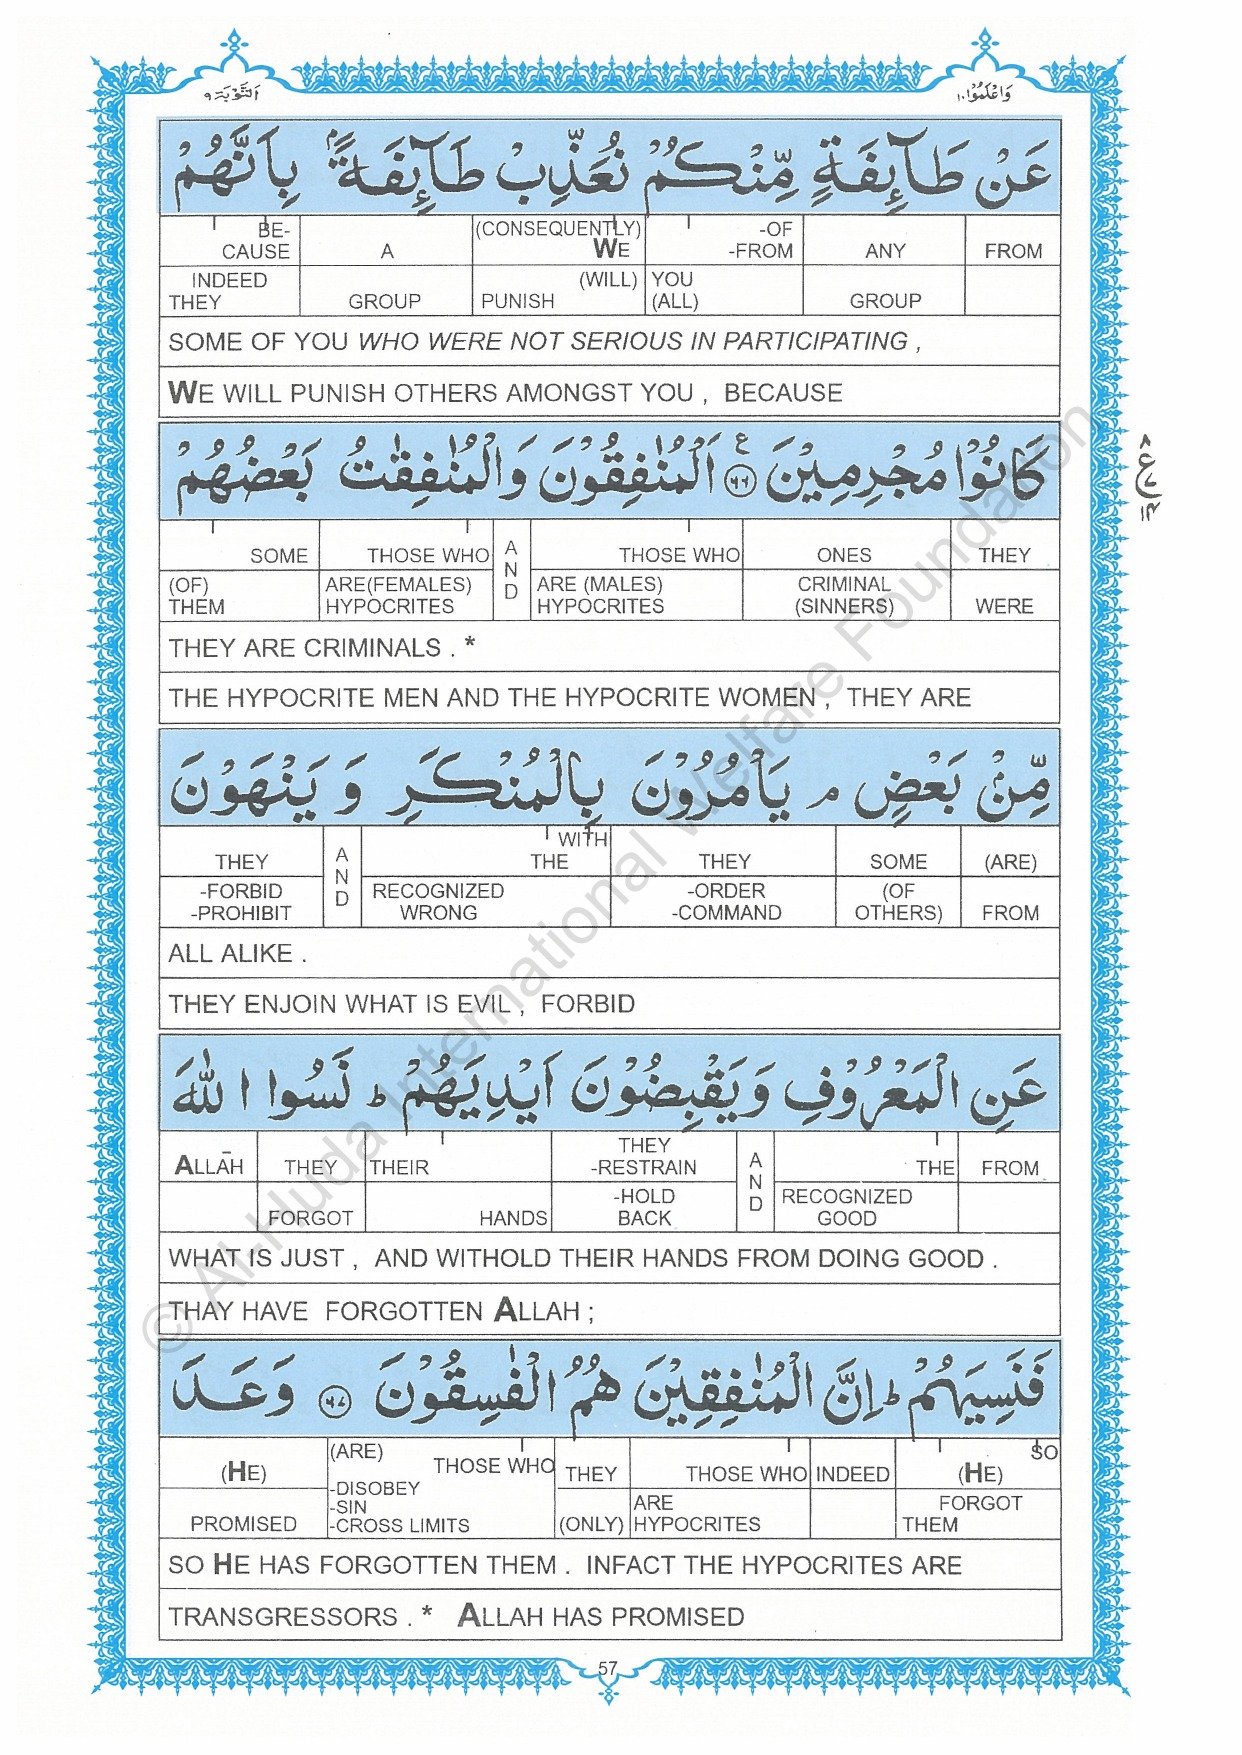 اَلتَّوْبَة ٩
وَاعْلَمُوْا ١٠
عَنْ طَآئِفَةٍ مِّنْكُمْ نُعَذِّبْ طَآئِفَةًۢ بِاَنَّهُمْ
BE- (CONSEQUENTLY) -OF
CAUSE A WE -FROM ANY FROM
INDEED (WILL) YOU
THEY GROUP PUNISH (ALL) GROUP
SOME OF YOU WHO WERE NOT SERIOUS IN PARTICIPATING ,
WE WILL PUNISH OTHERS AMONGST YOU , BECAUSE
كَانُوْا مُجْرِمِيْنَ ۝٦٦ ع اَلْمُنٰفِقُوْنَ وَالْمُنٰفِقٰتُ بَعْضُهُمْ
٨ ع ٧ ١٤
SOME THOSE WHO AND THOSE WHO ONES THEY
(OF) ARE(FEMALES) ARE (MALES) CRIMINAL
THEM HYPOCRITES HYPOCRITES (SINNERS) WERE
THEY ARE CRIMINALS . *
THE HYPOCRITE MEN AND THE HYPOCRITE WOMEN , THEY ARE
مِّنْۢ بَعْضٍ ۘ يَاْمُرُوْنَ بِالْمُنْكَرِ وَ يَنْهَوْنَ
WITH
THEY AND THE THEY SOME (ARE)
-FORBID RECOGNIZED -ORDER (OF
-PROHIBIT WRONG -COMMAND OTHERS) FROM
ALL ALIKE .
THEY ENJOIN WHAT IS EVIL , FORBID
عَنِ الْمَعْرُوْفِ وَيَقْبِضُوْنَ اَيْدِيَهُمْ ؕ نَسُوا اللّٰهَ
THEY
ALLĀH THEY THEIR -RESTRAIN AND THE FROM
-HOLD RECOGNIZED
FORGOT HANDS BACK GOOD
WHAT IS JUST , AND WITHOLD THEIR HANDS FROM DOING GOOD .
THAY HAVE FORGOTTEN ALLAH ;
فَنَسِيَهُمْ ؕ اِنَّ الْمُنٰفِقِيْنَ هُمُ الْفٰسِقُوْنَ ۝٦٧ وَعَدَ
(ARE) SO
(HE) THOSE WHO THEY THOSE WHO INDEED (HE)
-DISOBEY
-SIN ARE FORGOT
PROMISED -CROSS LIMITS (ONLY) HYPOCRITES THEM
SO HE HAS FORGOTTEN THEM . INFACT THE HYPOCRITES ARE
TRANSGRESSORS . * ALLAH HAS PROMISED
57
© Al-Huda International Welfare Foundation